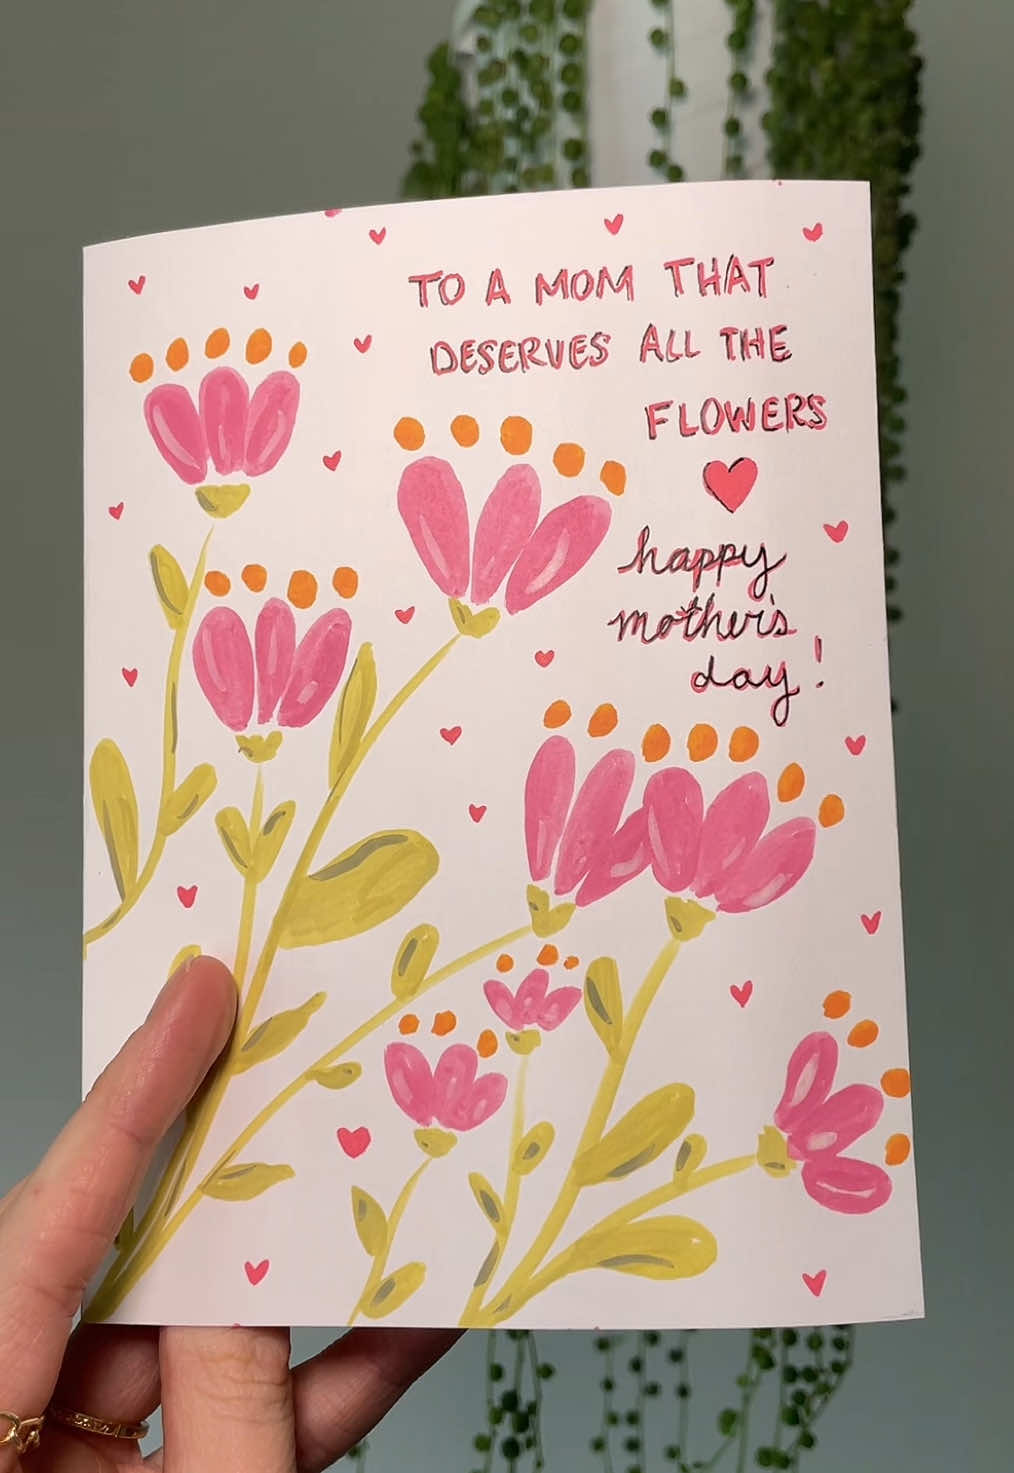 TO A MOM THAT
DESERVES ALL THE
FLOWERS
happy
mother's
day!